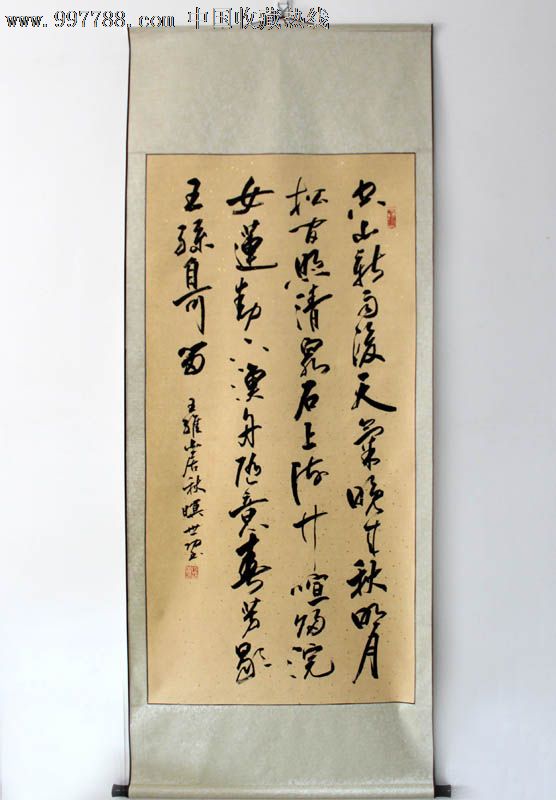 www.997788.com 中国收藏热线
空山新雨後天氣晚来秋明月
松间照清泉石上流竹喧歸浣
女蓮動下漁舟随意春芳歇
王孫自可留
王維山居秋暝世